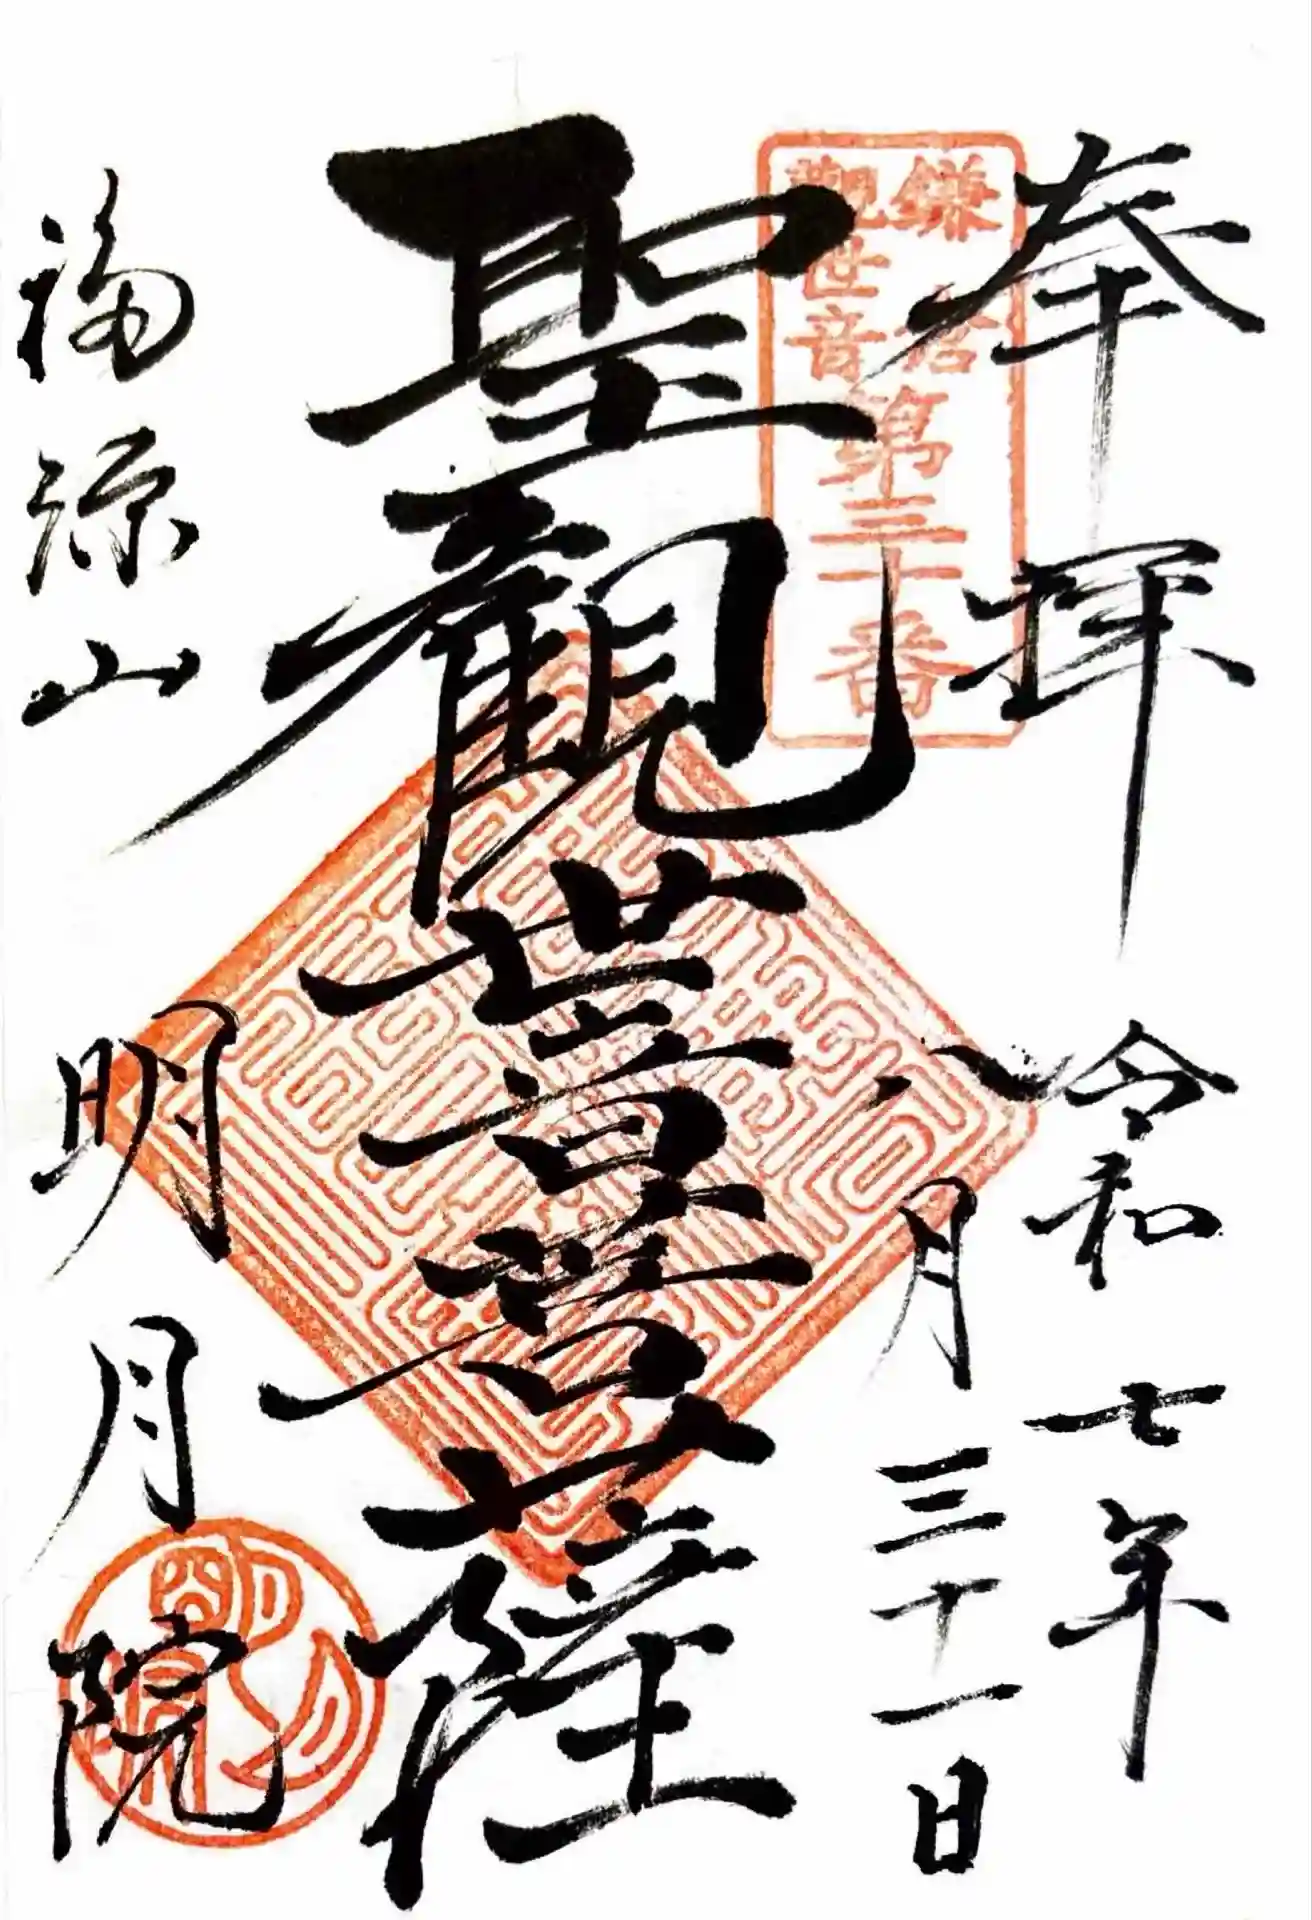 奉拝
令和七年
八月三十一日
鎌倉
観世音
第三十番
聖観世音菩薩
福源山
明月院